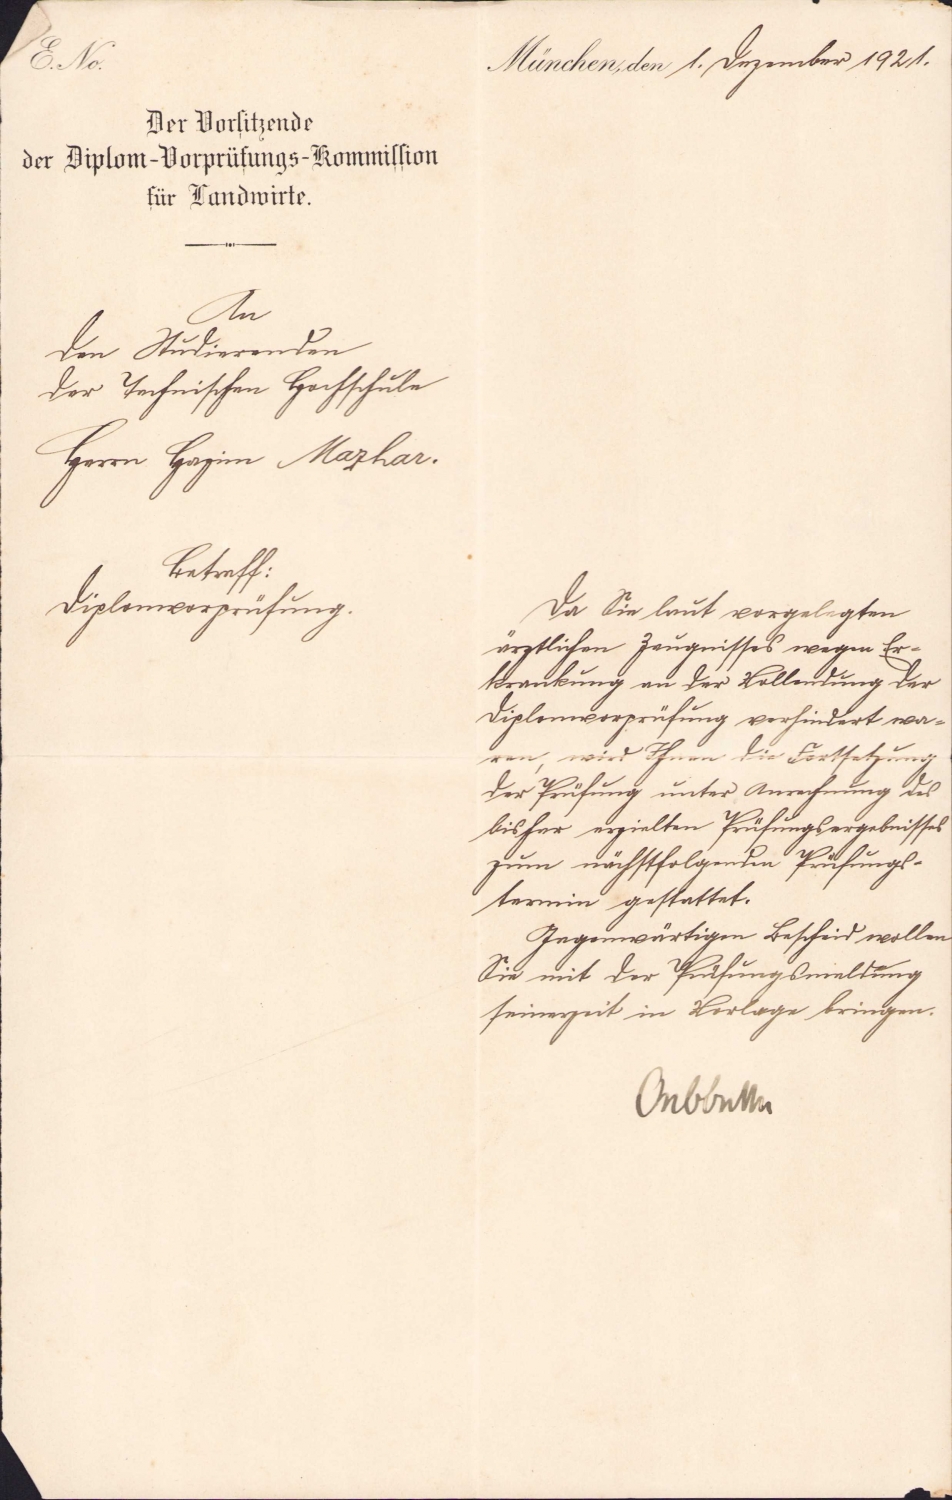 E. No.
München, den 1. Dezember 1921.
Der Vorsitzende
der Diplom-Vorprüfungs-Kommission
für Landwirte.
An
den Studierenden
der Technischen Hochschule
Herrn Hazim Mazhar.
Betreff:
Diplomvorprüfung.
Da Sie laut vorgelegten
ärztlichen Zeugnisses wegen Er-
krankung an der Vollendung der
Diplomvorprüfung verhindert wa-
ren, wird Ihnen die Fortsetzung
der Prüfung unter Anrechnung des
bisher erzielten Prüfungsergebnisses
zum nächstfolgenden Prüfungs-
termin gestattet.
Gegenwärtigen Bescheid wollen
Sie mit der Prüfungsmeldung
seinerzeit in Vorlage bringen.